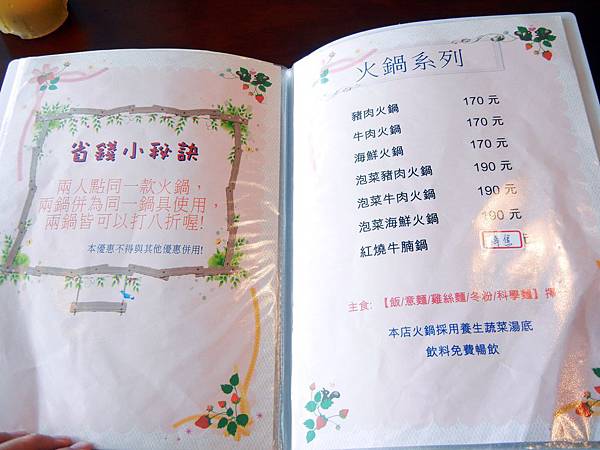 省錢小秘訣
兩人點同一款火鍋，
兩鍋併為同一鍋具使用，
兩鍋皆可以打八折喔!
本優惠不得與其他優惠併用!
火鍋系列
豬肉火鍋 170 元
牛肉火鍋 170 元
海鮮火鍋 170 元
泡菜豬肉火鍋 190 元
泡菜牛肉火鍋 190 元
泡菜海鮮火鍋 190 元
紅燒牛腩鍋 元
主食: 【飯/意麵/雞絲麵/冬粉/科學麵】擇
本店火鍋採用養生蔬菜湯底
飲料免費暢飲